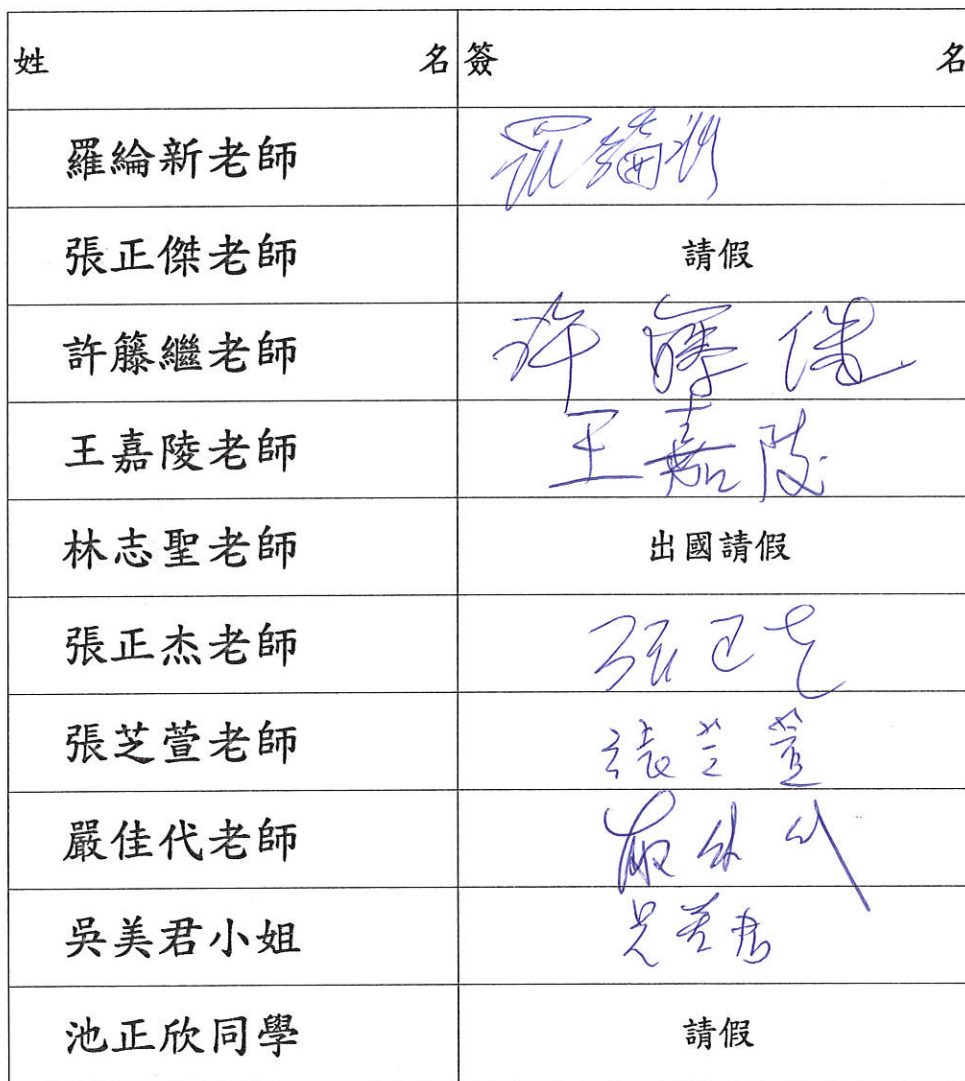 姓名 簽名
羅綸新老師 羅綸新
張正傑老師 請假
許籐繼老師 許籐繼
王嘉陵老師 王嘉陵
林志聖老師 出國請假
張正杰老師 張正杰
張芝萱老師 張芝萱
嚴佳代老師 嚴佳代
吳美君小姐 吳美君
池正欣同學 請假